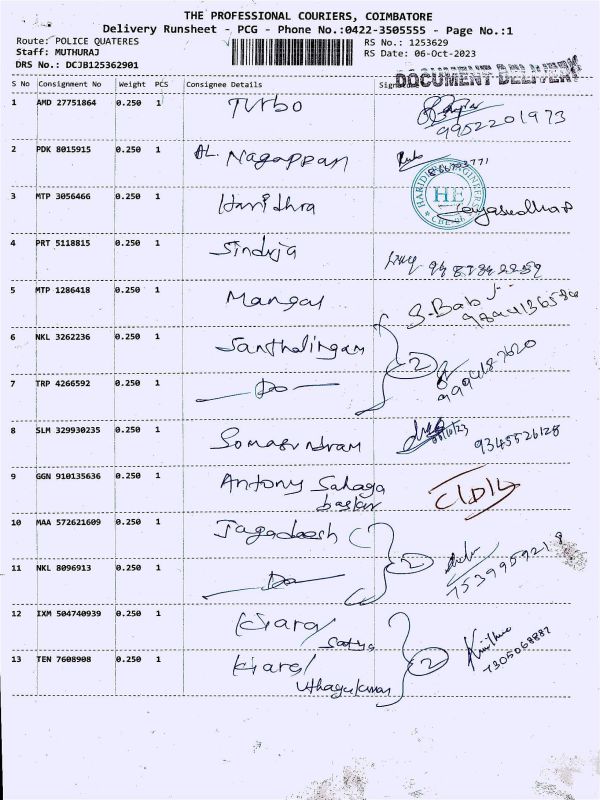 THE PROFESSIONAL COURIERS, COIMBATORE
Delivery Runsheet - PCG - Phone No.:0422-3505555 - Page No.:1
Route: POLICE QUATERES
RS No.: 1253629
Staff: MUTHURAJ
RS Date: 06-Oct-2023
DRS No.: DCJB125362901
DOCUMENT DELIVERY
S No Consignment No Weight PCS Consignee Details Signature
1 AMD 27751864 0.250 1 Turbo
9952201973
2 PDK 8015915 0.250 1 AL. Nagappan
3 MTP 3056466 0.250 1 Haridhra
HE
4 PRT 5118815 0.250 1 Sinduja
5 MTP 1286418 0.250 1 Mangal
S. Babu
6 NKL 3262236 0.250 1 Santhalingam
2
7 TRP 4266592 0.250 1 Do
8 SLM 329930235 0.250 1 Somasundram
9345526128
9 GGN 910135636 0.250 1 Antony Sahaga
baskar
10 MAA 572621609 0.250 1 Jagadeesh
2
11 NKL 8096913 0.250 1 Do
7539959218
12 IXM 504740939 0.250 1 Kiara/
Sathya
2
7305068887
13 TEN 7608908 0.250 1 Kiara/
Uthayakumar